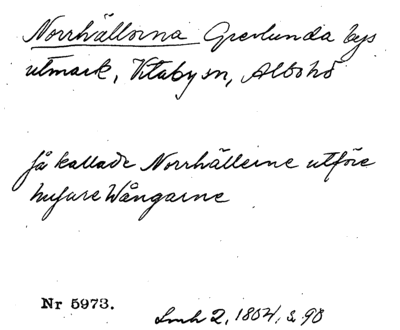 Norrhällorna Grevlunda bys
utmark, Vitaby sn, Albo hd
så kallade Norrhällerne utföre
husare Wångarne
Nr 5973.
Lmh 2, 1804, s. 90